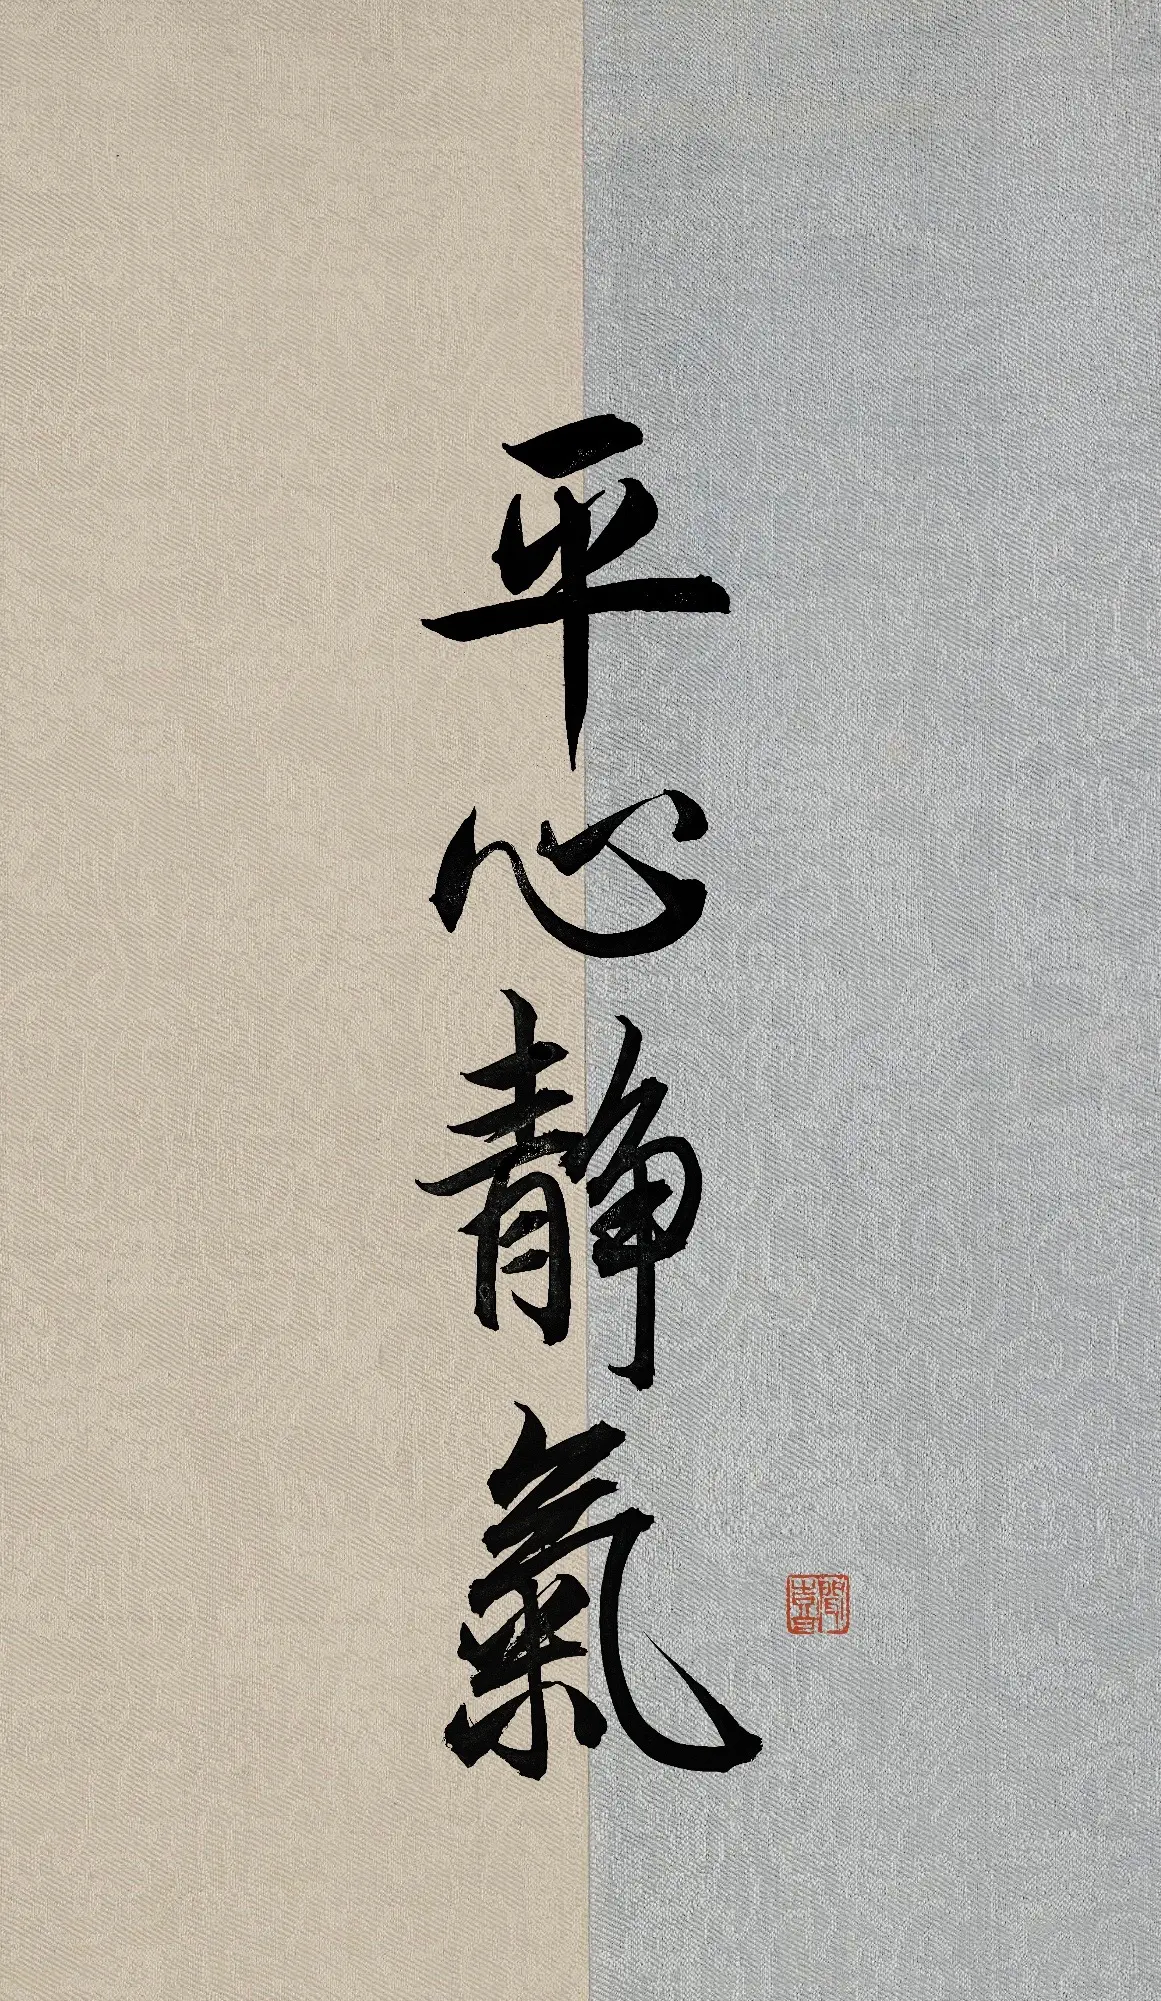 平心静氣